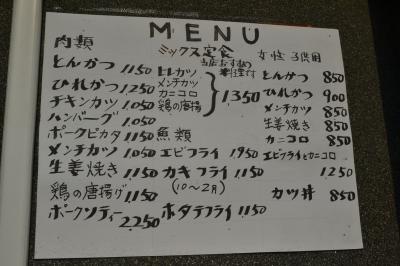 MENU
肉類
とんかつ 1150
ひれかつ 1250
チキンカツ 1050
ハンバーグ 1050
ポークピカタ 1150
メンチカツ 1050
生姜焼き 1150
鶏の唐揚げ 1150
ポークソティー 2250
ミックス定食
当店おすすめ
ヒレカツ
メンチカツ
カニコロ
鶏の唐揚
1350
魚類
エビフライ 1950
カキフライ 1150
(10〜2月)
ホタテフライ 1150
女性 子供用
とんかつ 850
ひれかつ 900
メンチカツ 850
生姜焼き 850
カニコロ 850
エビフライとカニコロ
1250
カツ丼 850